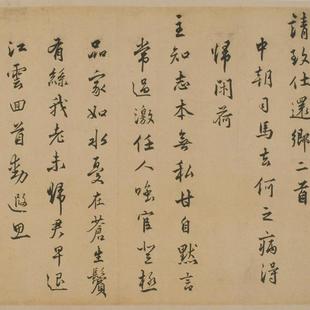 請致仕還鄉二首
中朝司馬去何之病得
帰閑荷
主知志本無私甘自默言
常過激任人嗤官登極
品家如水憂在蒼生鬢
有絲我老未歸君早退
江雲回首動遐思